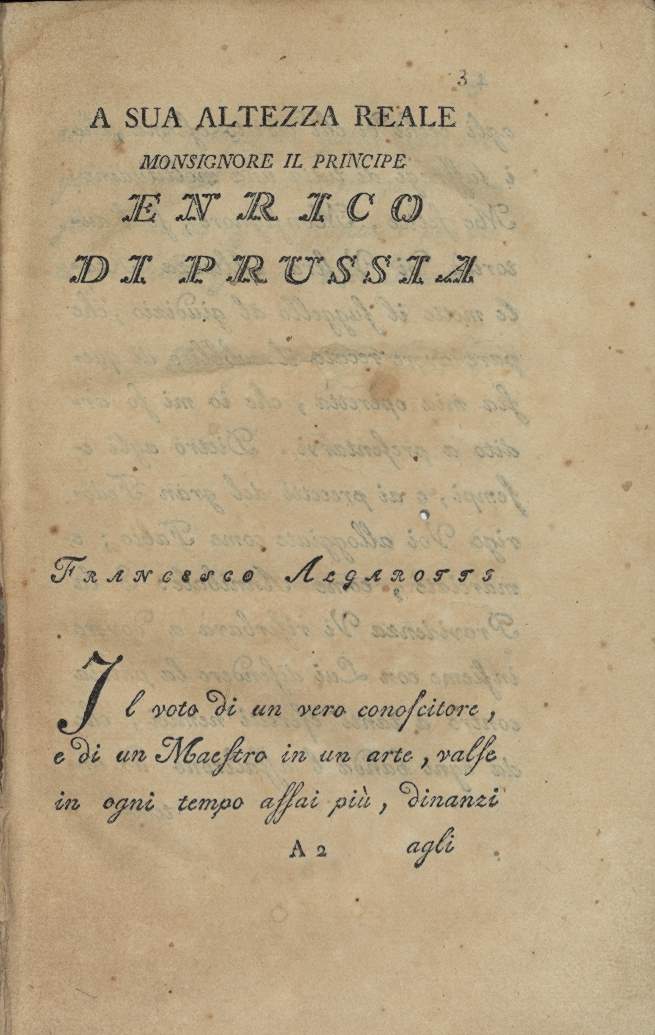 3
A SUA ALTEZZA REALE
MONSIGNORE IL PRINCIPE
ENRICO
DI PRUSSIA
FRANCESCO ALGAROTTI
Il voto di un vero conoſcitore,
e di un Maeſtro in un arte, valſe
in ogni tempo aſſai più, dinanzi
A 2 agli